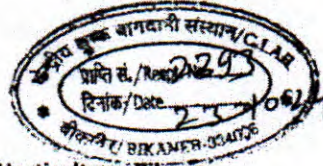 केन्द्रीय शुष्क बागवानी संस्थान/C.I.A.H
प्राप्ति सं./Re 2293
दिनांक/Date 23
बीकानेर/ BIKANER-334006